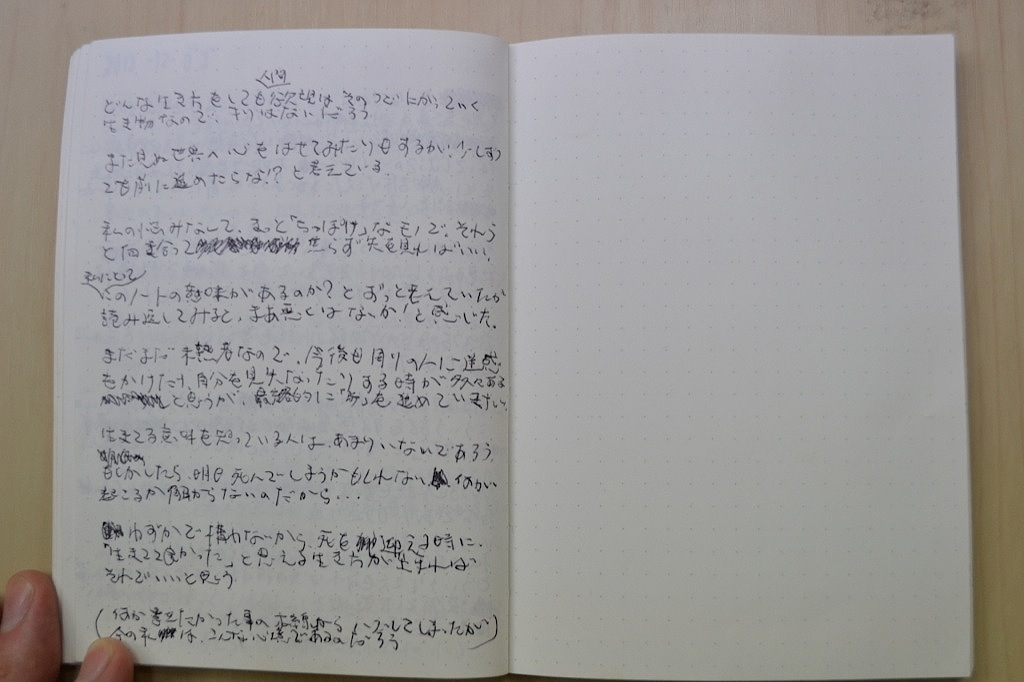 人間
どんな生き方をしても欲望はそのつどにかわっていく
生き物なので、キリはないだろう
まだ見ぬ世界へ心をはせてみたりもするが、少しずつ
でも前に進めたらな!?と考えている.
私の悩みなんて、きっと「ちっぽけ」なモノで、それら
と向き合って焦らず先を見ればいい、
私にとって
このノートの意味があるのか?とずっと考えていたが
読み返してみると、まあ悪くはないか!と感じた.
まだまだ未熟者なので、今後も周りの人に迷惑
をかけたり、自分を見失なったりする時が多々ある
と思うが、最終的に「歩」を進めていきたい.
生きてる意味を知っている人は、あまりいないであろう
もしかしたら、明日死んでしまうかもしれない、何が
起こるか解からないのだから...
わずかで構わないから、死を迎える時に、
「生きてて良かった」と思える生き方が出来れば
それでいいと思う
(何か書きたかった事の本線からハズしてしまったが
今の私は、こんな心境であるのだろう)